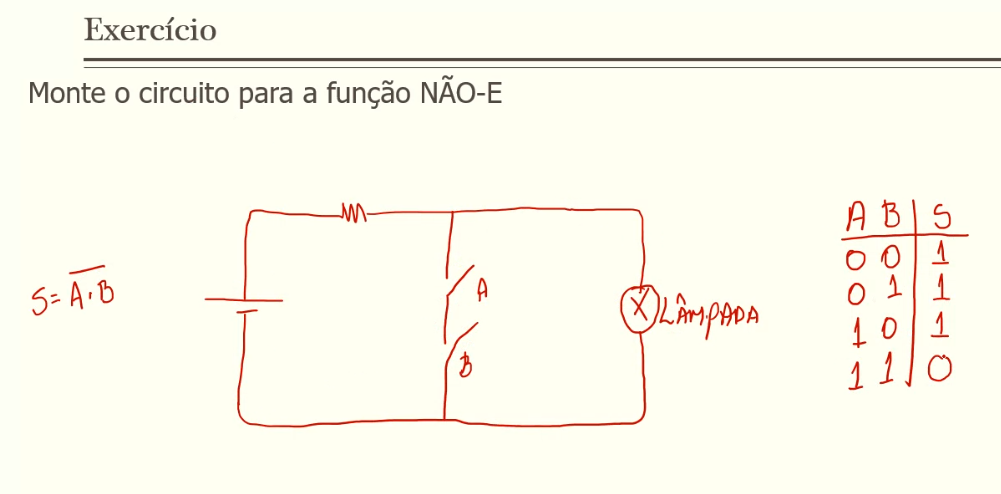 Exercício
Monte o circuito para a função NÃO-E
S = \overline{A·B}
A
B
X
LÂMPADA
A B | S
0 0 | 1
0 1 | 1
1 0 | 1
1 1 | 0